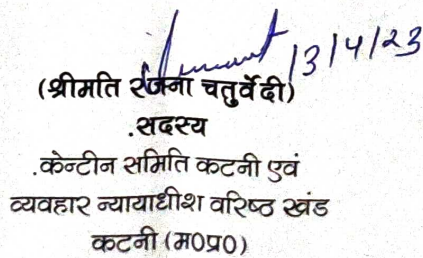 13/4/23
(श्रीमति रंजना चतुर्वेदी)
.सदस्य
.केन्टीन समिति कटनी एवं
व्यवहार न्यायाधीश वरिष्ठ खंड
कटनी (म0प्र0)